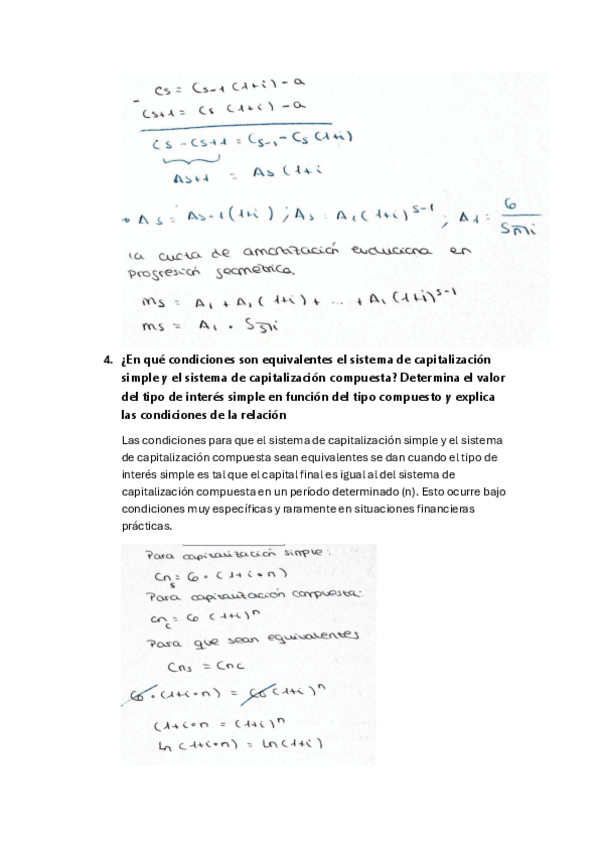 Cs = Cs-1 (1+i) - a
- Cs+1 = Cs (1+i) - a
Cs - Cs+1 = Cs-1 - Cs (1+i)
As+1 = As (1+i
→ As = As-1 (1+i) ; As = A1 (1+i)^s-1 ; A1 = C0 / Sn¬i
la cuota de amortización evoluciona en
progresión geométrica.
ms = A1 + A1 (1+i) + ... + A1 (1+i)^s-1
ms = A1 · Ss¬i
4. ¿En qué condiciones son equivalentes el sistema de capitalización
simple y el sistema de capitalización compuesta? Determina el valor
del tipo de interés simple en función del tipo compuesto y explica
las condiciones de la relación
Las condiciones para que el sistema de capitalización simple y el sistema
de capitalización compuesta sean equivalentes se dan cuando el tipo de
interés simple es tal que el capital final es igual al del sistema de
capitalización compuesta en un período determinado (n). Esto ocurre bajo
condiciones muy específicas y raramente en situaciones financieras
prácticas.
Para capitalización simple:
Cns = C0 · (1+i·n)
Para capitalización compuesta:
Cnc = C0 (1+i)^n
Para que sean equivalentes
Cns = Cnc
C0 · (1+i·n) = C0 (1+i)^n
(1+i·n = (1+i)^n
ln (1+i·n) = ln (1+i)